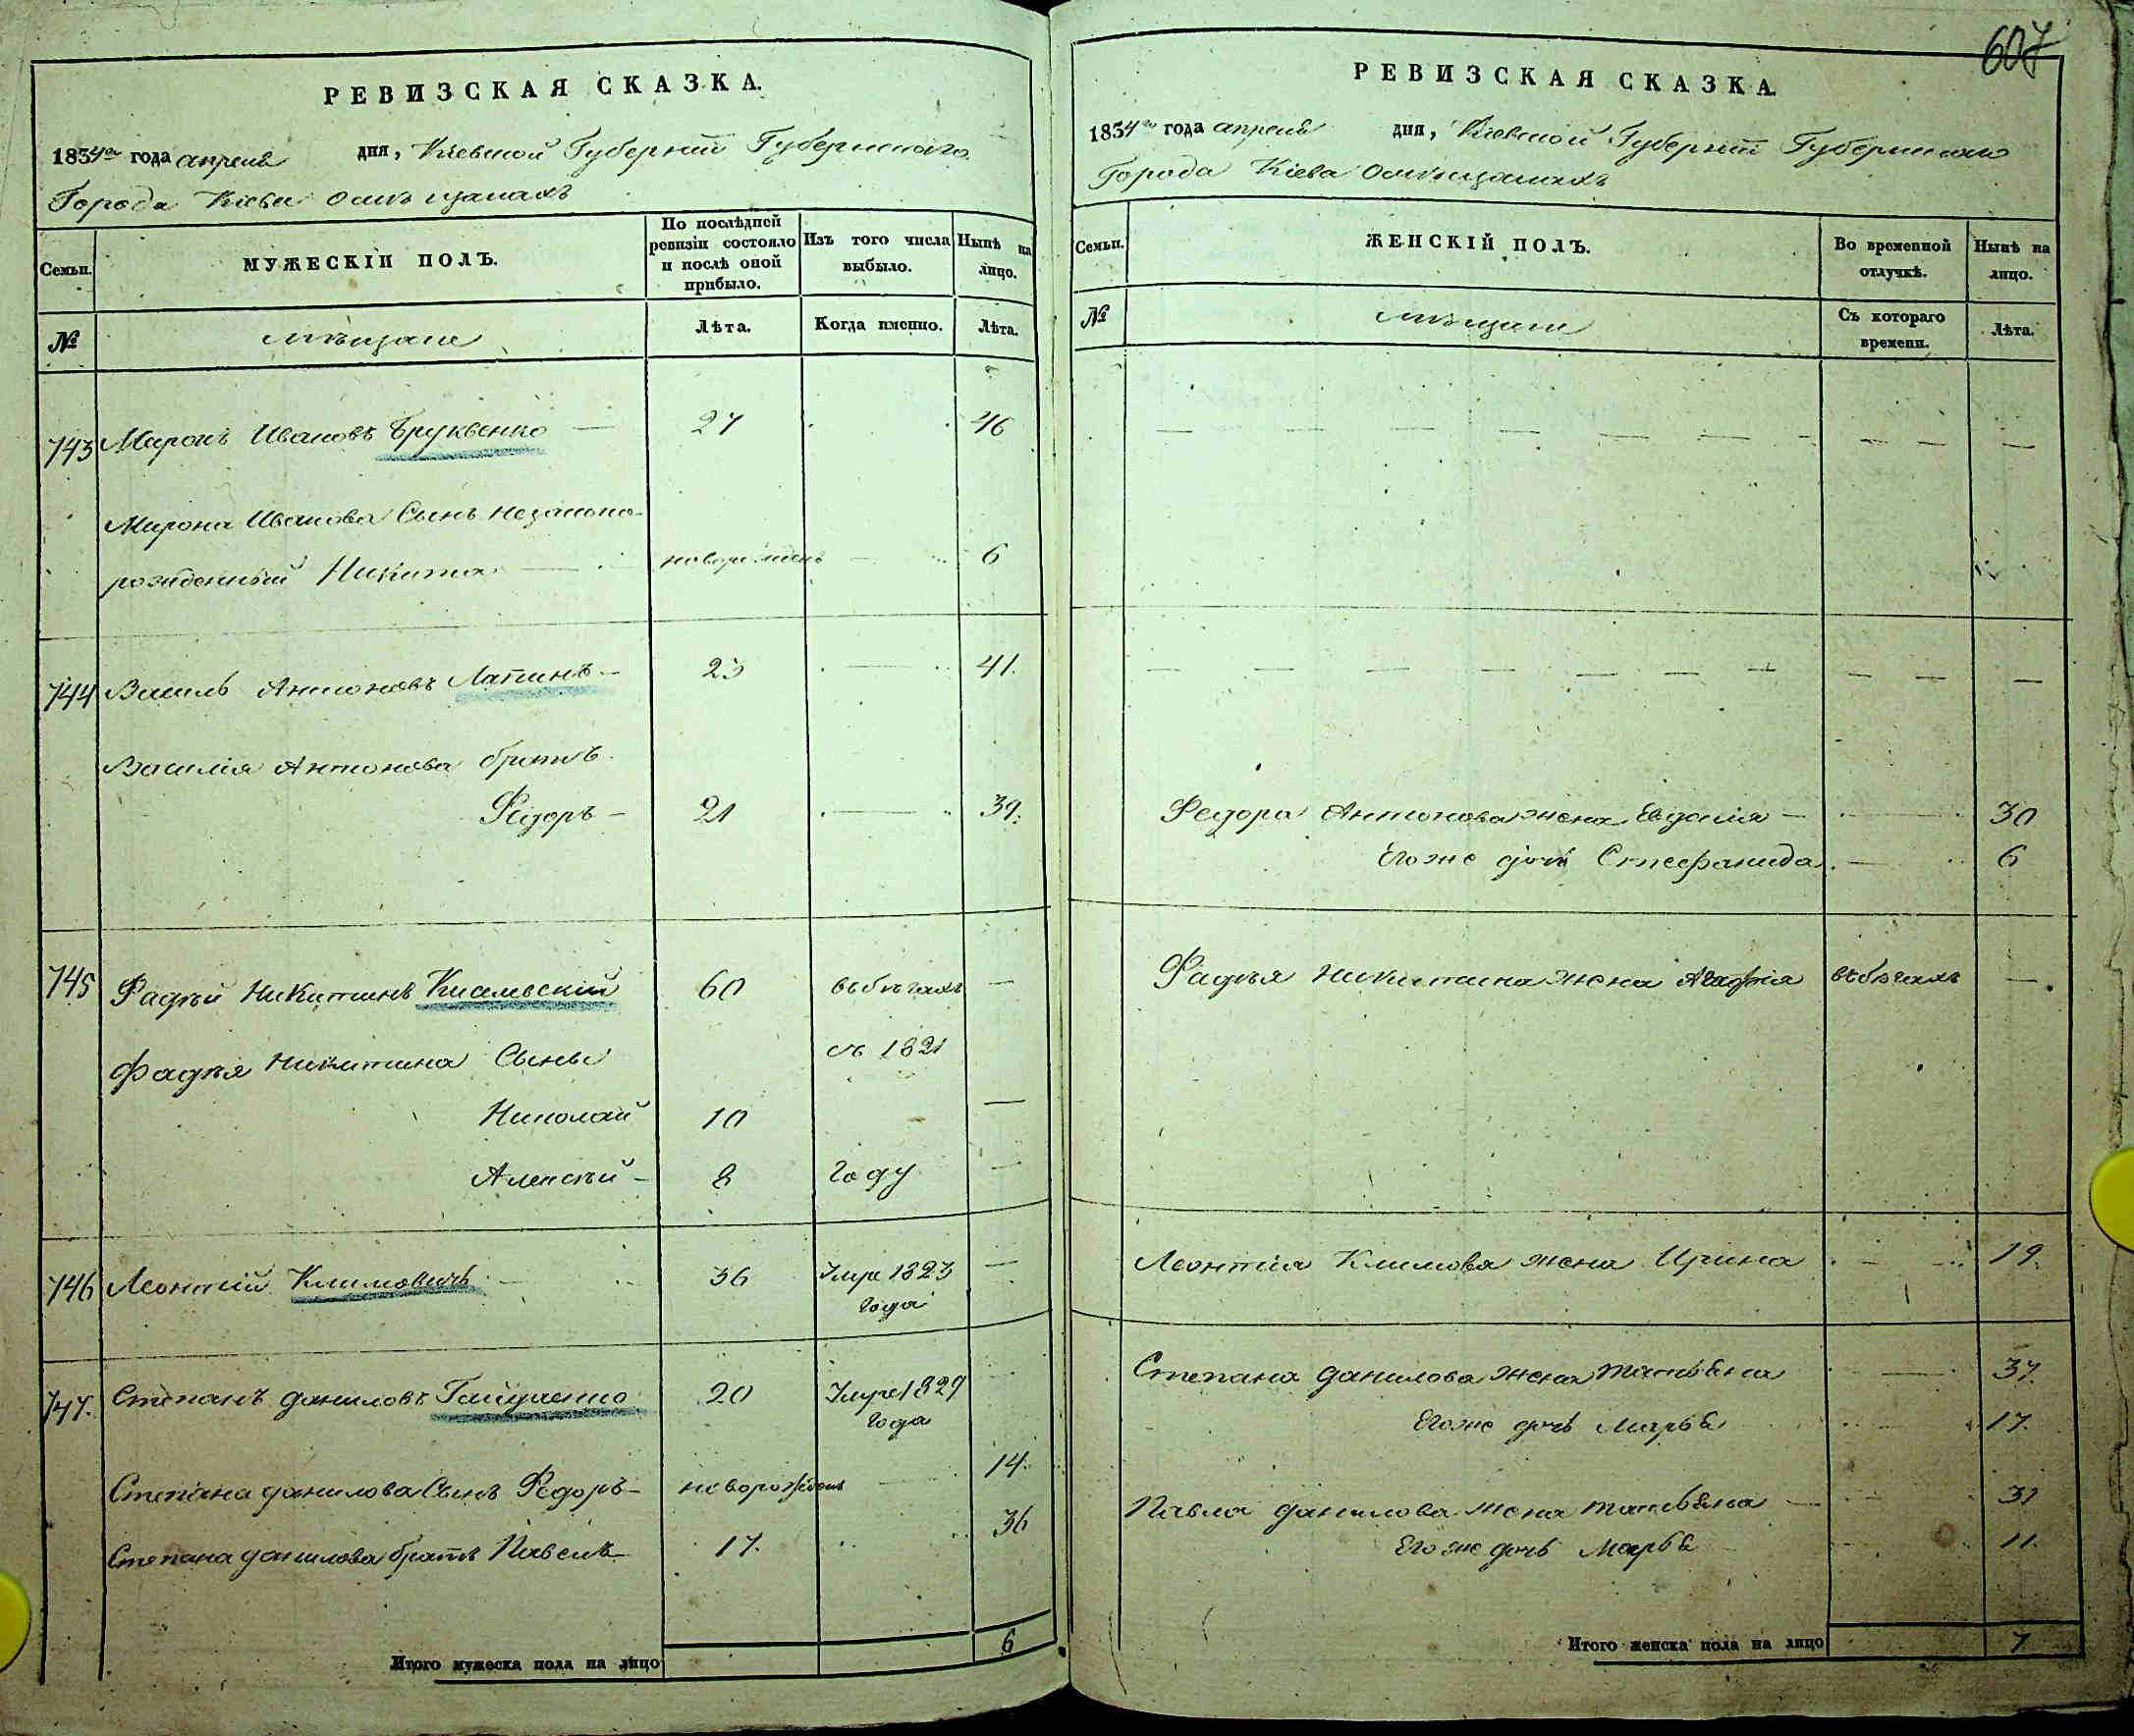 607
РЕВИЗСКАЯ СКАЗКА.
1834го года апреля дня, Кіевской Губерніи Губернскаго
Города Кіева о мѣщанахъ
Семьи.
МУЖЕСКІЙ ПОЛЪ.
По послѣдней ревизіи состояло и послѣ оной прибыло.
Изъ того числа выбыло.
Нынѣ на лицо.
№
мѣщане
Лѣта.
Когда именно.
Лѣта.
743 Миронъ Ивановъ Бруквенко — 27 46
Мирона Иванова Сынъ незаконо-
рожденный Никита — 6
744 Василь Антоновъ Лапинъ — 23 — 41.
Василія Антонова братъ
Федоръ — 21 — 39.
745 Фадѣй Никитинъ Кисілевскій 60 въ бѣгахъ —
Фадѣя Никитина Сыны съ 1821
Николай 10 —
Алексѣй — 8 году —
746 Леонтій Климовичъ — 36 Умре 1823 —
года
747. Степанъ Даниловъ Гайдаенко 20 Умре 1829 —
года
Степана Данилова Сынъ Федоръ — новорожденъ — 14.
Степана Данилова братъ Павелъ — 17. 36
Итого мужеска пола на лицо 6
РЕВИЗСКАЯ СКАЗКА.
1834го года апреля дня, Кіевской Губерніи Губернскаго
Города Кіева о мѣщанахъ
Семьи.
ЖЕНСКІЙ ПОЛЪ.
Во временной отлучкѣ.
Нынѣ на лицо.
№
мѣщане
Съ котораго времени.
Лѣта.
— — — — — — — — — —
— — — — — — — — — —
Федора Антонова жена Евдокія — — 30
Его же дочь Стефанида — 6
Фадѣя Никитина жена Агафія въ бѣгахъ —
Леонтія Климова жена Ирина — 19.
Степана Данилова жена Татьяна — 37.
Его же дочь Марья 17.
Павла Данилова жена Татьяна — 31
Его же дочь Марья 11.
Итого женска пола на лицо 7